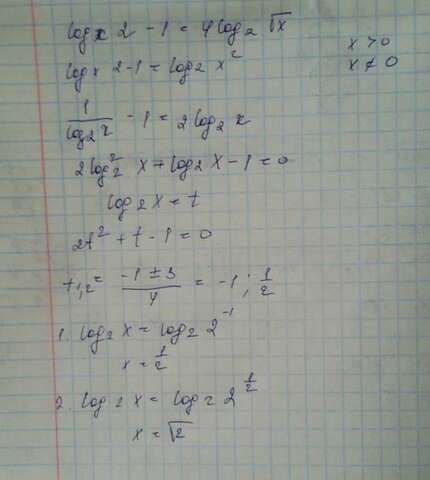 log_x 2 - 1 = 4 log_2 √x
x > 0
x ≠ 0
log_x 2 - 1 = log_2 x^2
1/(log_2 x) - 1 = 2 log_2 x
2 log_2^2 x + log_2 x - 1 = 0
log_2 x = t
2t^2 + t - 1 = 0
t_1,2 = (-1 ± 3)/4 = -1; 1/2
1. log_2 x = log_2 2^-1
x = 1/2
2. log_2 x = log_2 2^(1/2)
x = √2